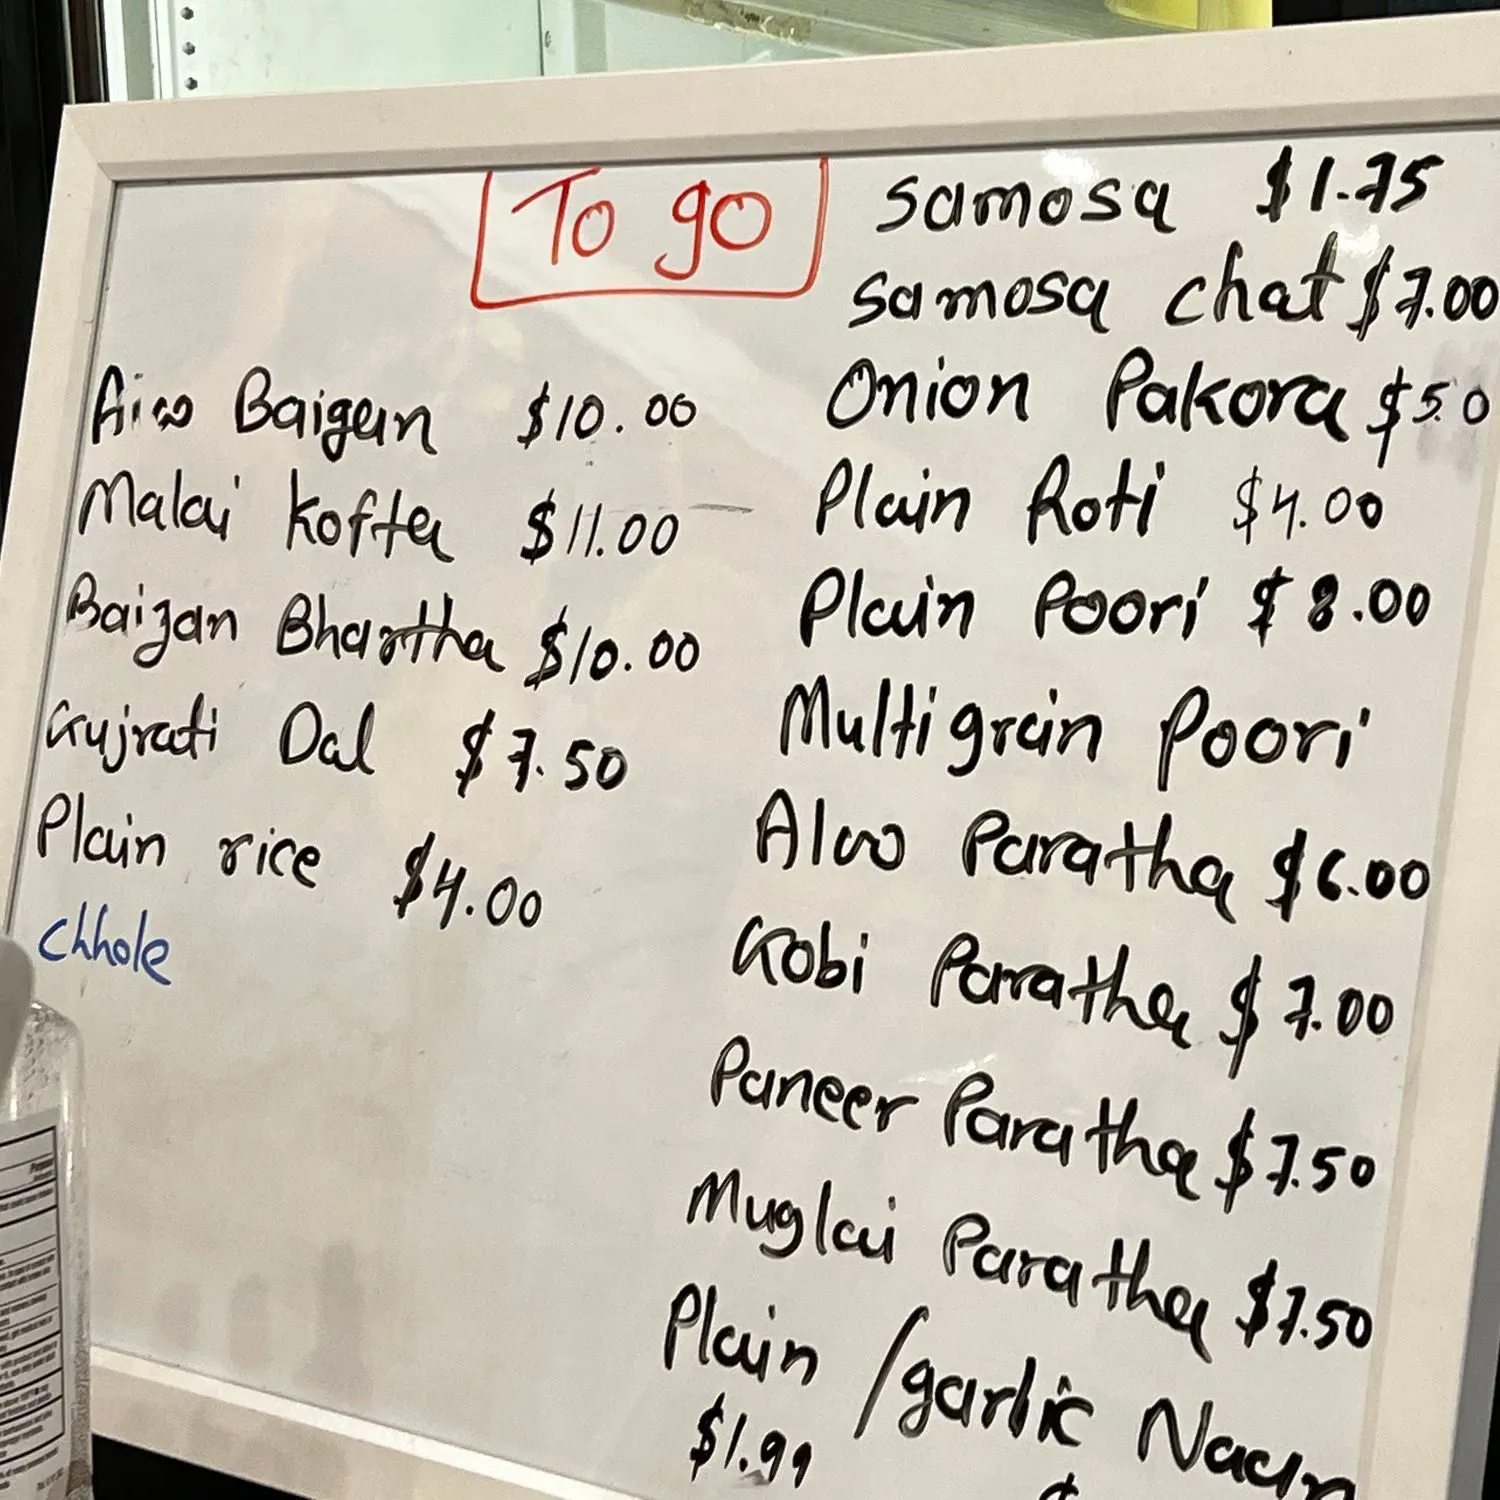 To go
Aloo Baigan $10.00
Malai Kofta $11.00
Baigan Bhartha $10.00
Gujrati Dal $7.50
Plain rice $4.00
Chhole
Samosa $1.75
Samosa chat $7.00
Onion Pakora $5.0
Plain Roti $4.00
Plain Poori $8.00
Multigrain Poori
Aloo Paratha $6.00
Gobi Paratha $7.00
Paneer Paratha $7.50
Muglai Paratha $7.50
Plain /garlic Naan
$1.99 $